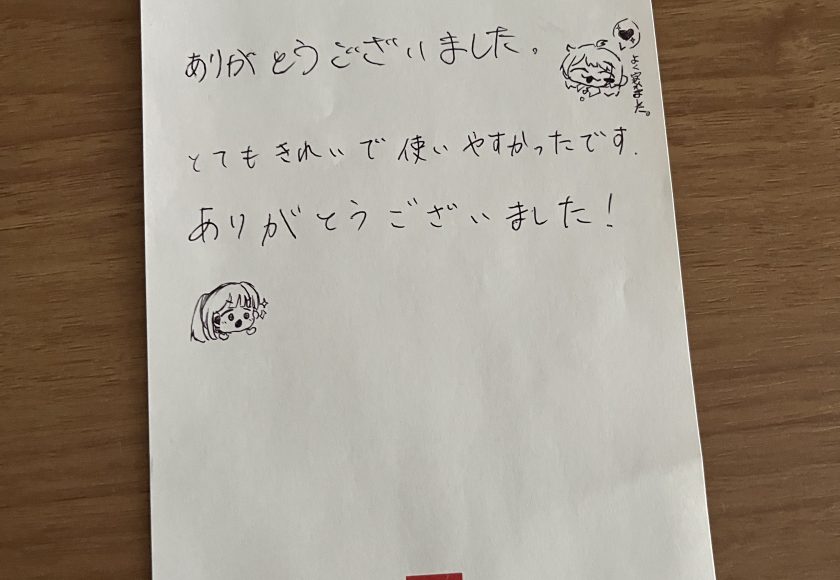 ありがとうございました。
よく寝ました。
とてもきれいで使いやすかったです.
ありがとうございました!